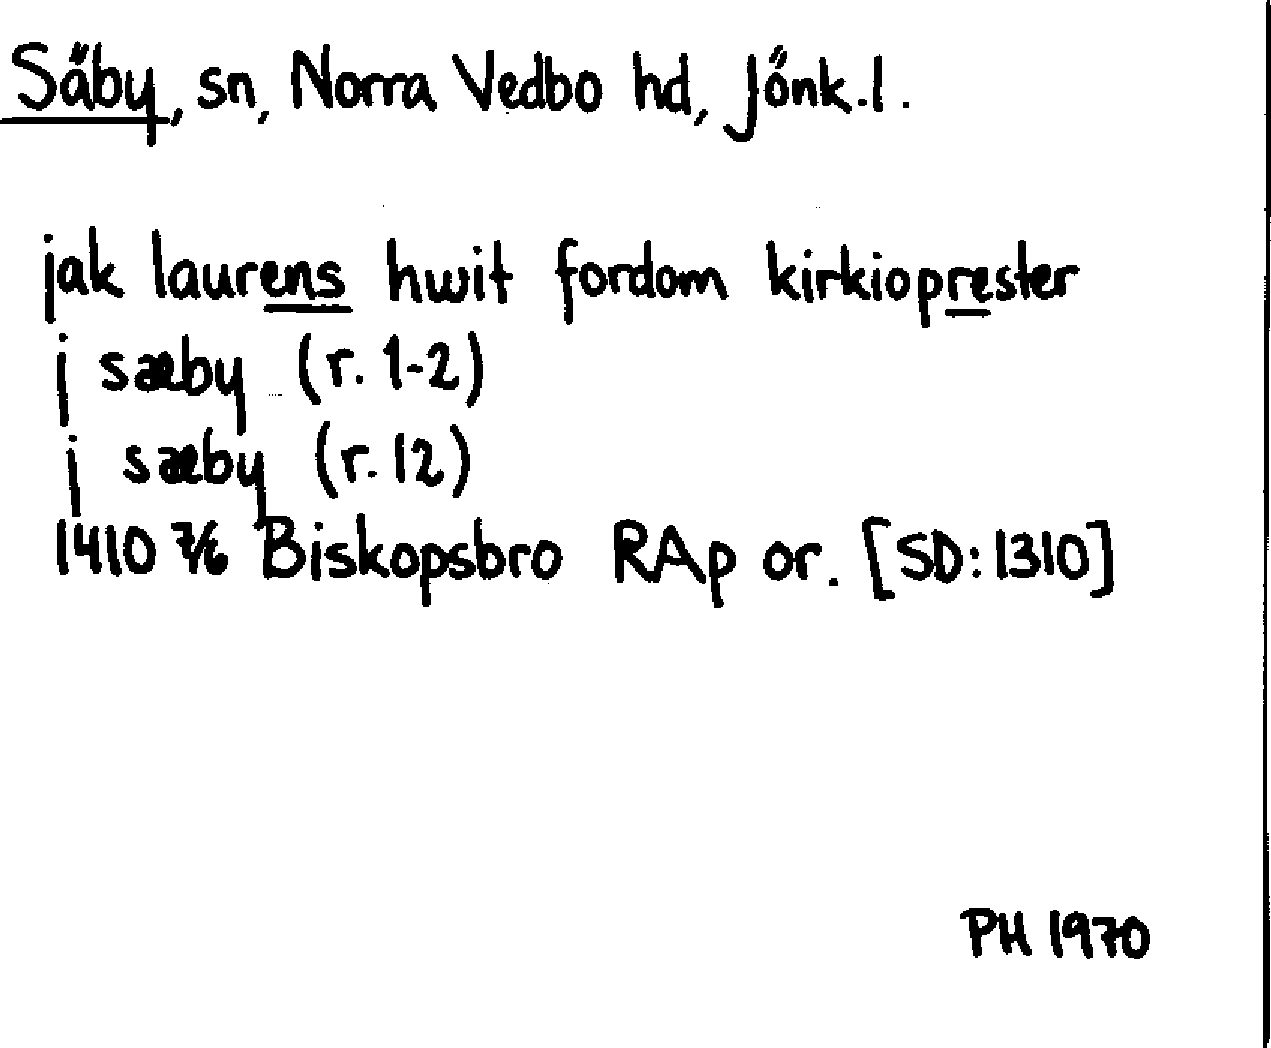 Säby, sn, Norra Vedbo hd, Jönk.l.
jak laurens hwit fordom kirkioprester
j sæby (r. 1-2)
j sæby (r. 12)
1410 7/6 Biskopsbro RAp or. [SD: 1310]
PH 1970